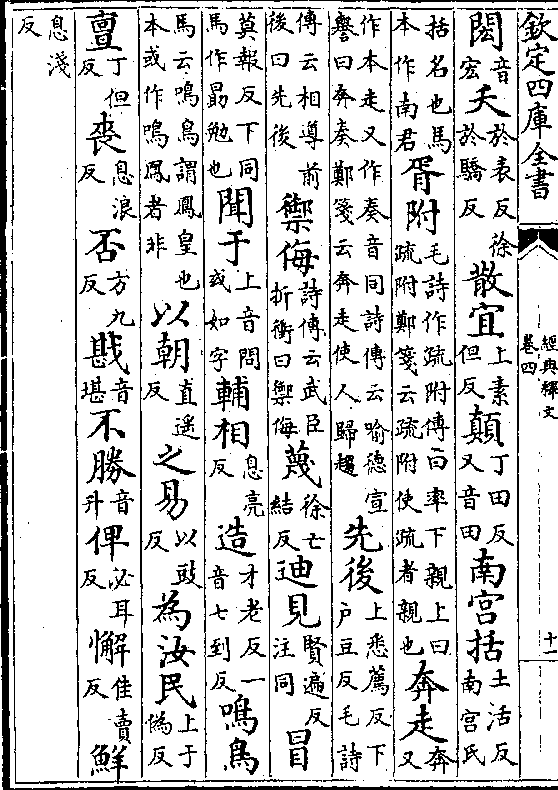 欽定四庫全書 經典釋文 卷四 十一
閎音宏夭於表反徐於驕反散宜上素但反顛丁田反又音田南宫括土活反南宫氏
括名也馬本作南君胥附毛詩作疏附傳曰率下親上曰疏附鄭箋云疏附使疏者親也奔走奔又
作本走又作奏音同詩傳云喻德宣譽曰奔奏鄭箋云奔走使人歸趨先後上悉薦反下戶豆反毛詩
傳云相導前後曰先後禦侮詩傳云武臣折衝曰禦侮蔑徐亡結反迪見賢遍反注同冒
莫報反下同馬作勗勉也聞于上音問或如字輔相息亮反造才老反一音七到反鳴鳥
馬云鳴鳥謂鳳皇也本或作鳴鳳者非以朝直遥反之易以豉反為汝民上于偽反
亶丁但反喪息浪反否方九反戡音堪不勝音升俾必耳反懈佳賣反鮮
息淺反